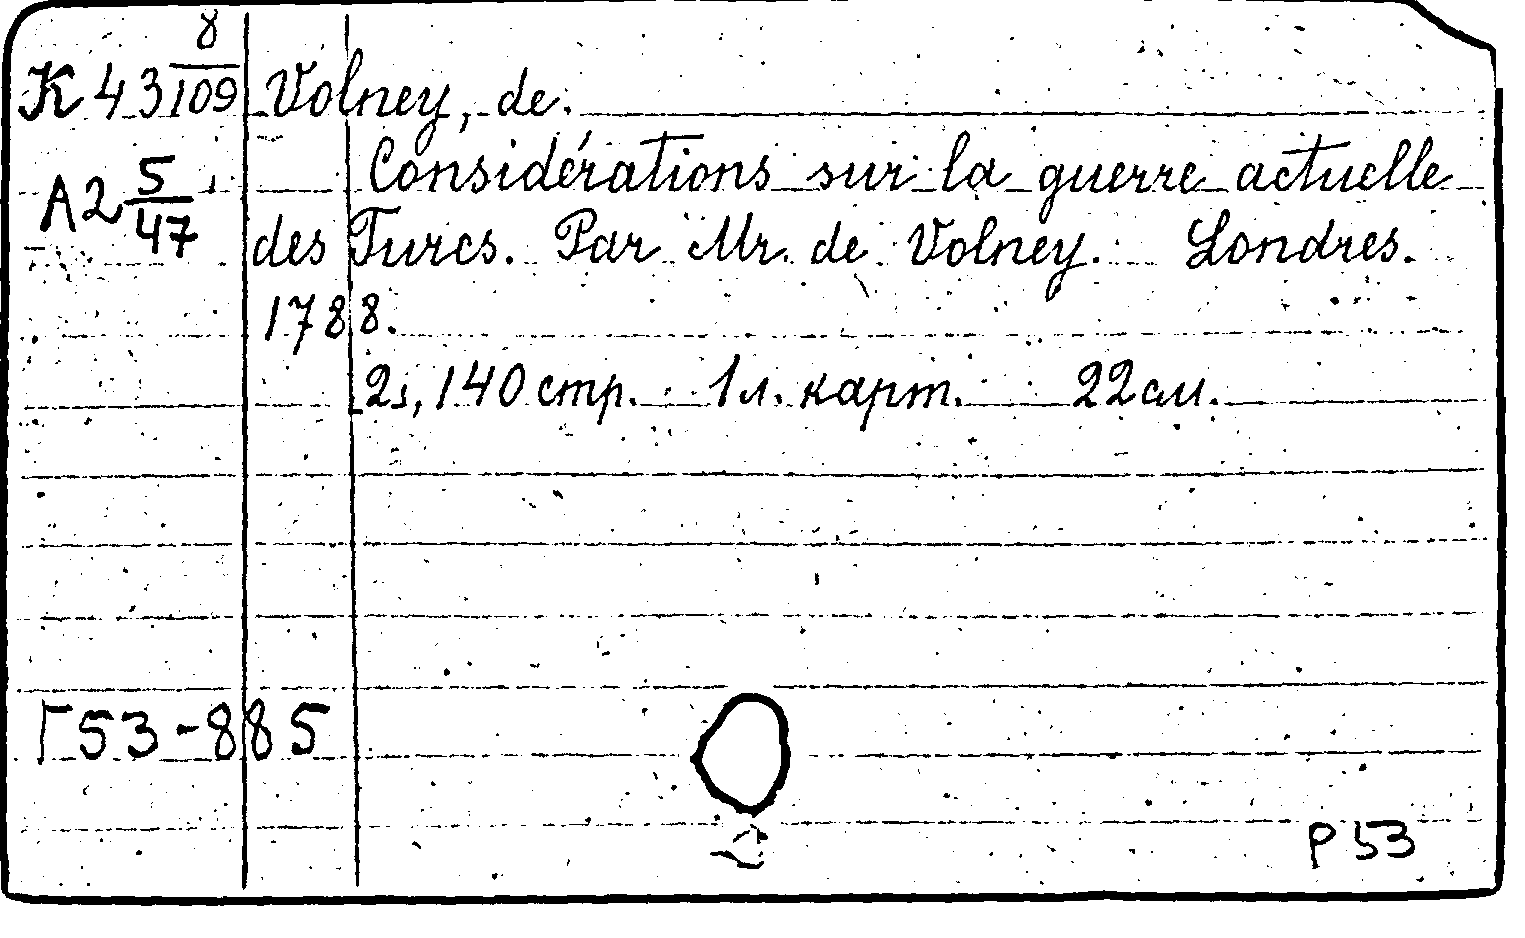 K 43 8/109 Volney, de.
Considérations sur la guerre actuelle
A2 5/47
des Turcs. Par Mr. de Volney. Londres.
1788.
2s, 140 стр. 1 л. карт. 22 см.
Г53-885
Р 53